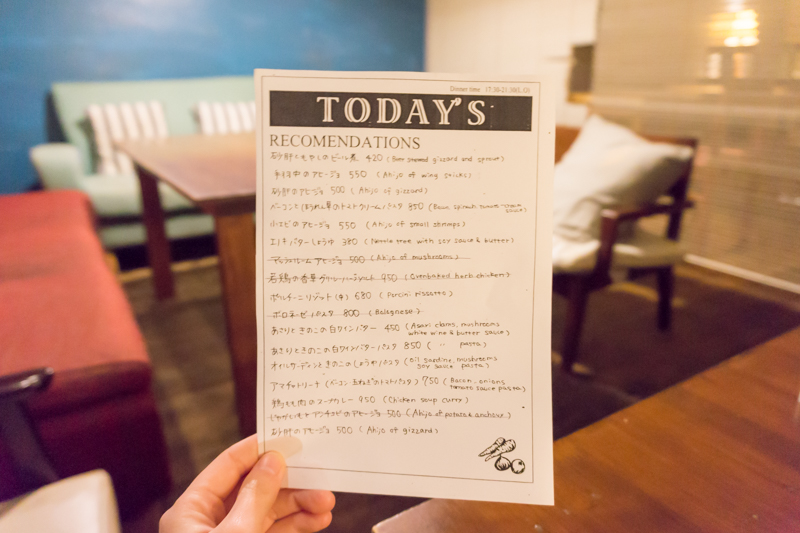 Dinner time 17:30-21:30(L.O)
TODAY'S
RECOMENDATIONS
砂肝ともやしのビール煮 420 (Beer steamed gizzard and sprout)
手羽中のアヒージョ 550 (Ahijo of wing sticks)
砂肝のアヒージョ 500 (Ahijo of gizzard)
ベーコンとほうれん草のトマトクリームパスタ 850 (Bacon, spinach tomato-cream
sauce)
小エビのアヒージョ 550 (Ahijo of small shrimps)
エリンギバターしょうゆ 380 (with soy sauce & butter)
マッシュルームアヒージョ 500 (Ahijo of mushrooms)
若鶏の香草グリル 950 (herb chicken)
ポルチーニリゾット 680 (Porcini rissotto)
ボロネーゼパスタ 800 (Bolognese)
あさりときのこの白ワインバター 450 (Asari clams, mushrooms
white wine & butter sauce)
あさりときのこの白ワインバターパスタ 850 ( 〃 pasta)
オイルサーディンときのこのしょうゆパスタ (Oil sardine, mushrooms
soy sauce pasta)
アマトリチャーナ (ベーコン 玉ねぎのトマトパスタ) 950 (Bacon, onions,
tomato sauce pasta)
鶏もも肉のスープカレー 950 (Chicken soup curry)
じゃがいもとアンチョビのアヒージョ 500 (Ahijo of potato & anchovy)
砂肝のアヒージョ 500 (Ahijo of gizzard)